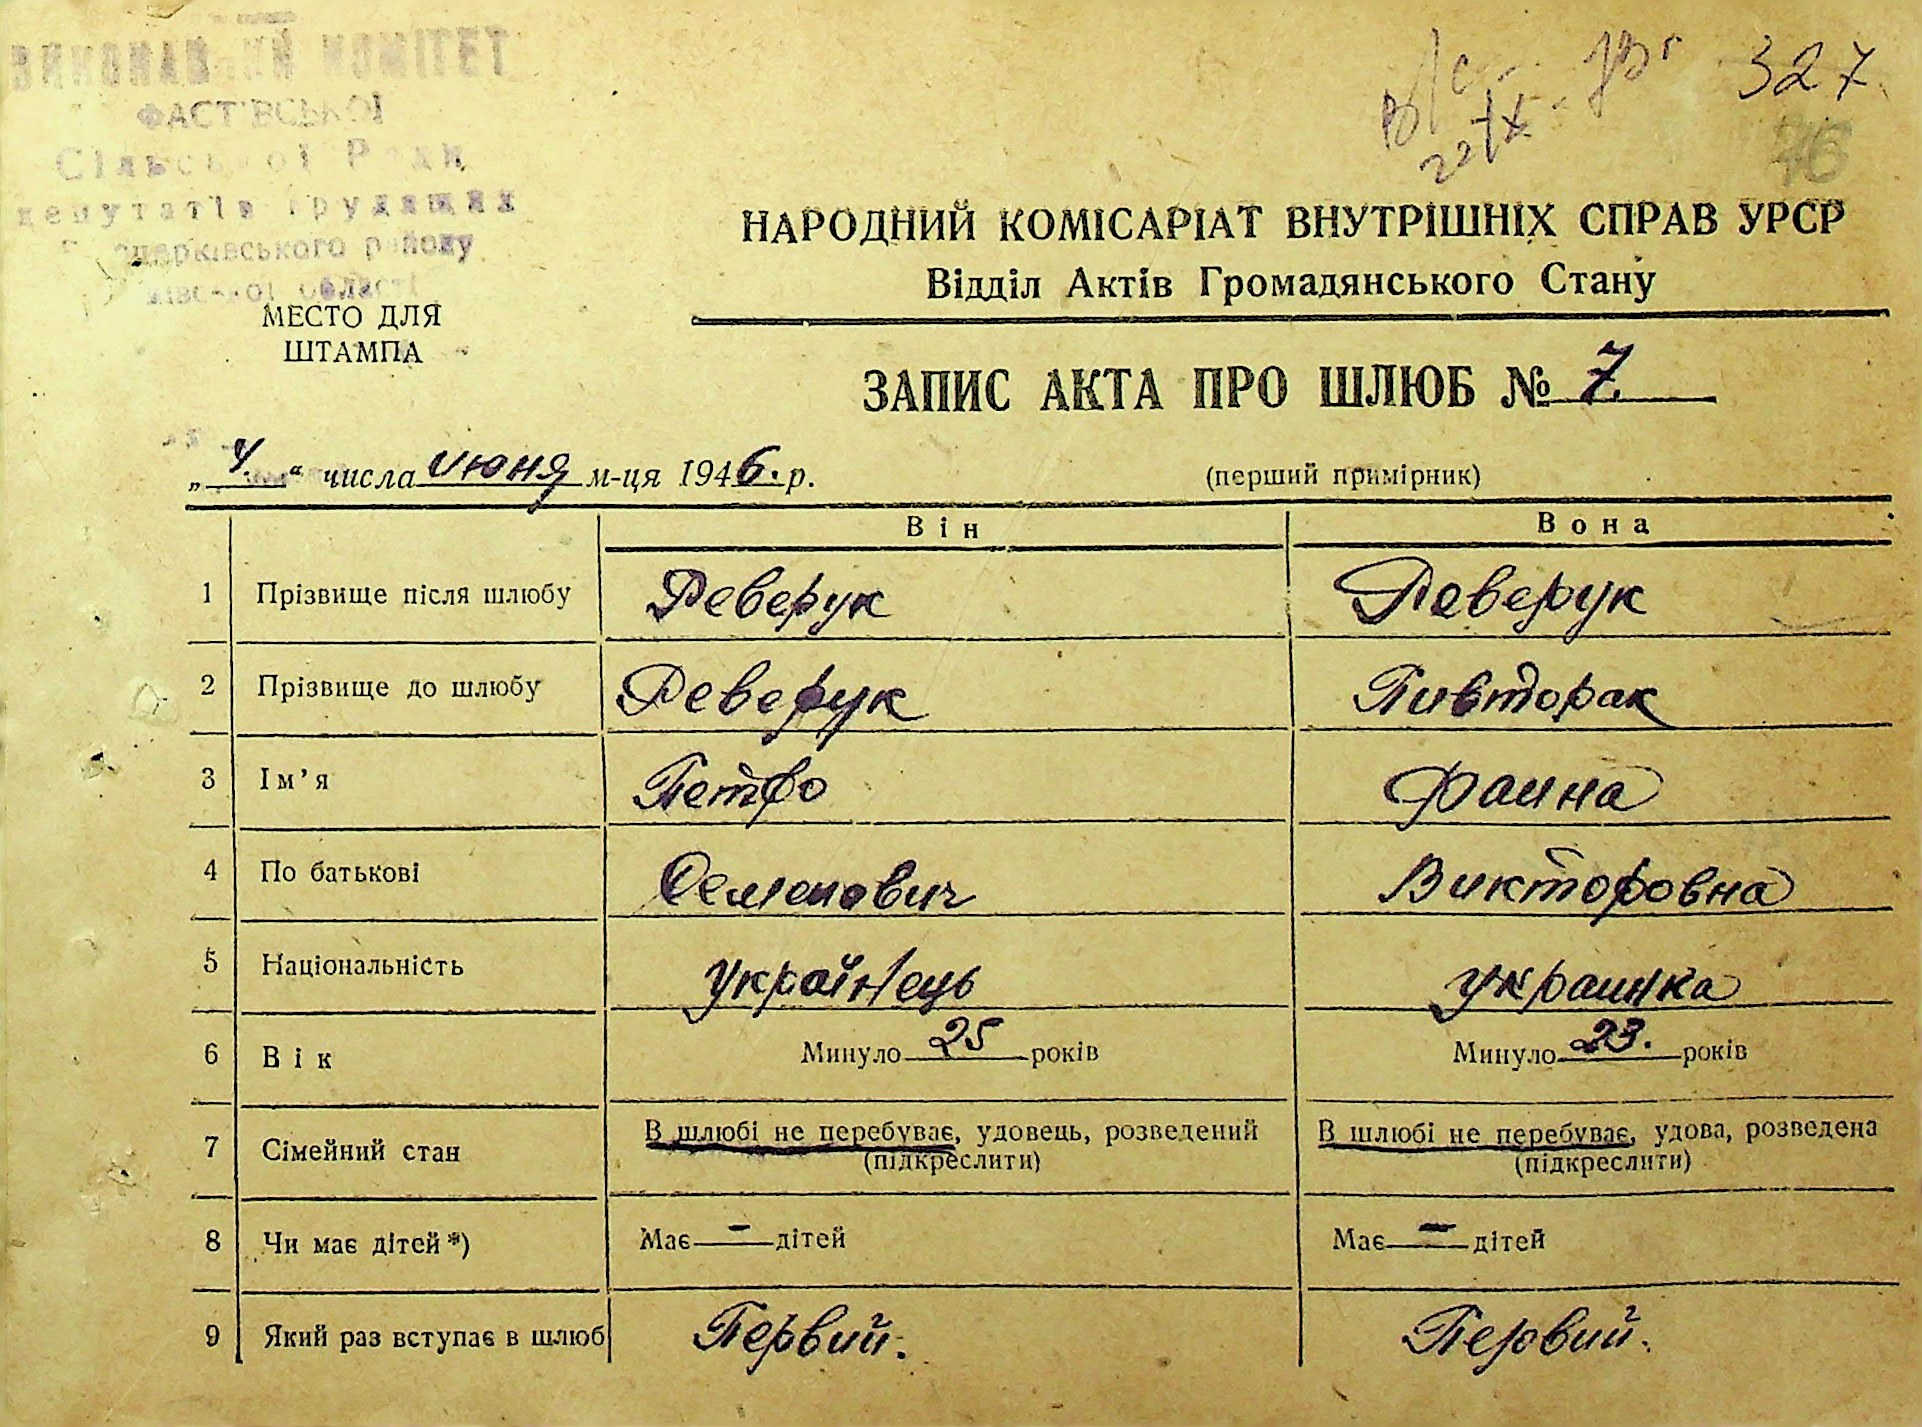 ВИКОНАВ ИЙ КОМІТЕТ
ФАСТ'ВСЬКОЇ
Сільської Ради
депутатів трудящих
району
області
327
76
22/X
НАРОДНИЙ КОМІСАРІАТ ВНУТРІШНІХ СПРАВ УРСР
Відділ Актів Громадянського Стану
МЕСТО ДЛЯ
ШТАМПА
ЗАПИС АКТА ПРО ШЛЮБ № 7
„4." числа июня м-ця 1946. р.
(перший примірник)
Він Вона
1 Прізвище після шлюбу Реверук Реверук
2 Прізвище до шлюбу Реверук Пивторак
3 Ім'я Петро Фаина
4 По батькові Семенович Викторовна
5 Національність українець украинка
6 Вік Минуло 25 років Минуло 23. років
7 Сімейний стан В шлюбі не перебуває, удовець, розведений В шлюбі не перебуває, удова, розведена
(підкреслити) (підкреслити)
8 Чи має дітей *) Має — дітей Має — дітей
9 Який раз вступає в шлюб Первий. Первий.